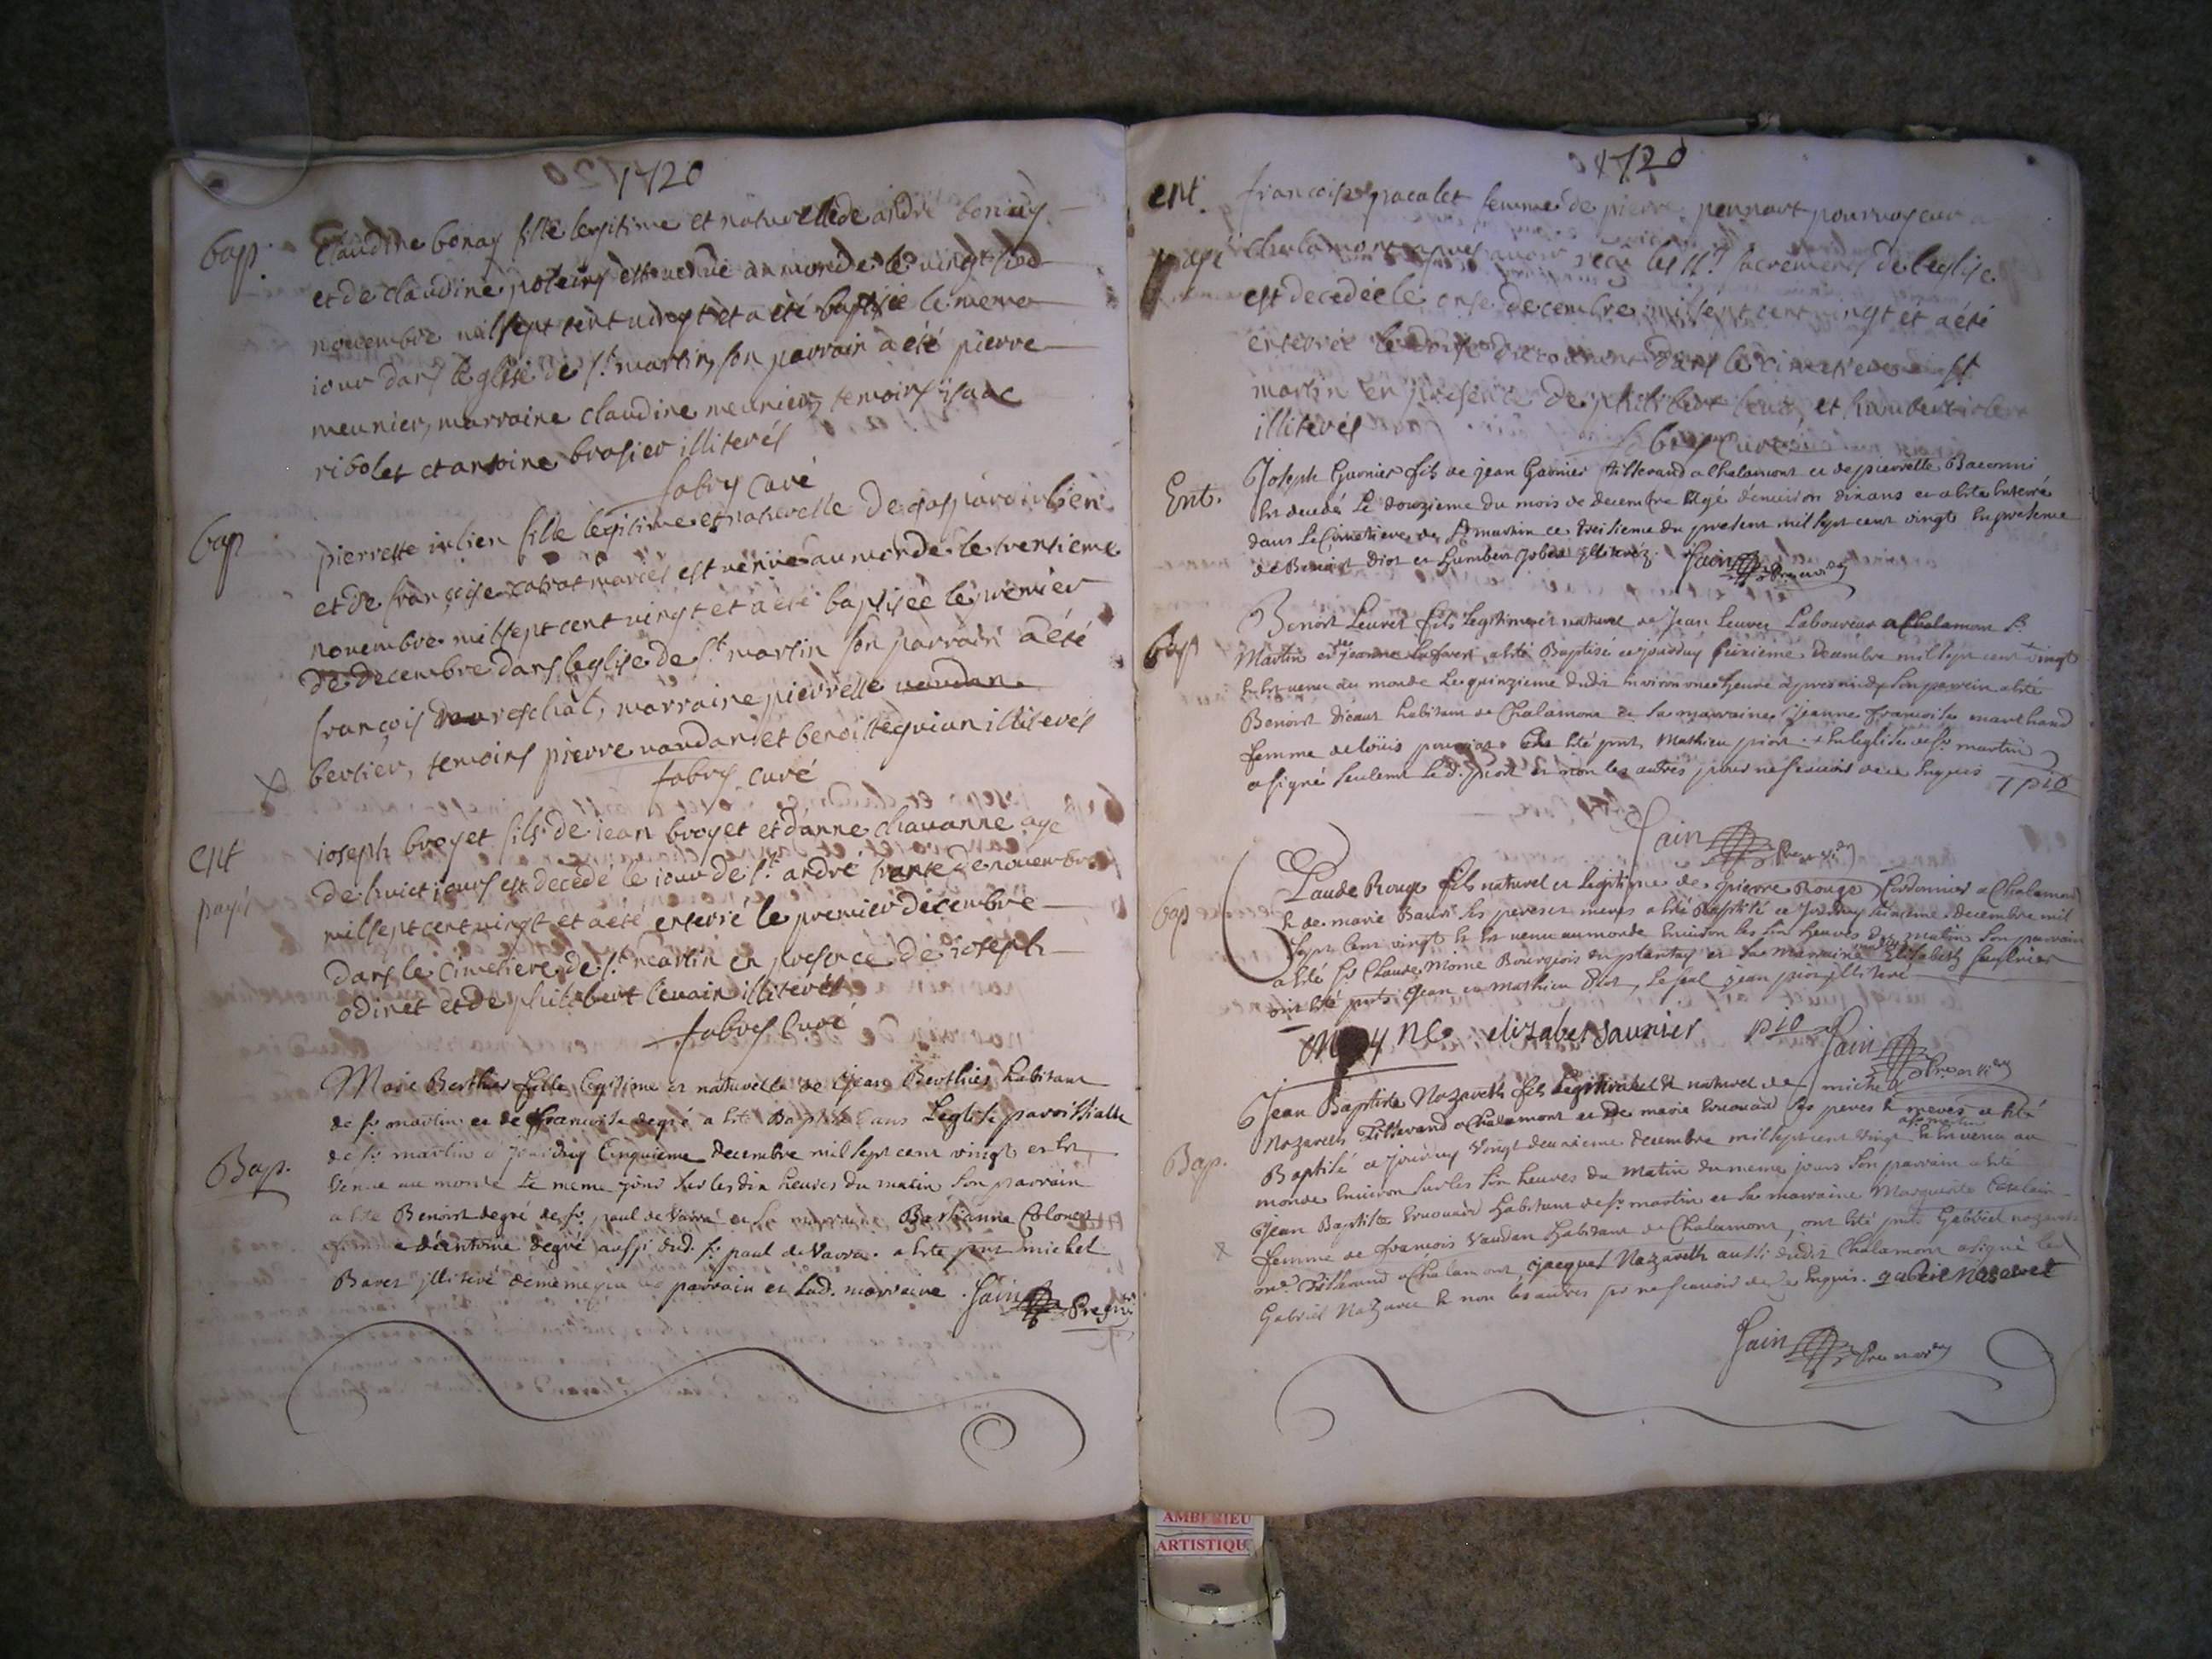 1720
bap. Claudine bonay fille legitime et naturelle de andré bonay
et de claudine poleins est venue au monde le vingt
novembre mil sept cent vingt et a eté baptisée le meme
iour dans leglise de st martin, son parrain a été pierre
meunier, marraine claudine meunier, temoins isaac
ribolet et antoine brasier illiterés
fabry curé
bap pierrette iulien fille legitime et naturelle de gaspard iulien
et de françoise est venüe au monde le trentieme
novembre mil sept cent vingt et a eté baptisée le premier
de decembre dans leglise de st martin son parrain a été
françois mareschal, marraine pierrette vaudan
berlier, temoins pierre vaudan et benoist illiterés
fabry curé
ent ioseph broyet fils de iean broyet et d'anne chavanne age
payé de huict iours est decedé le iour de st andré trente de novembre
mil sept cent vingt et a eté enterré le premier décembre
dans le cimetiere de st martin en presence de ioseph
odinet et de philibert levrain illiterés
fabry curé
Marie Berthier fille legitime et naturelle de Jean Berthier habitant
de st martin et de francoise degré a esté Baptisée dans Leglise parroissialle
Bap. de st martin ce jourdhuy Cinquieme decembre mil sept cent vingt et est
venue au monde le meme jour sur les dix heures du matin son parrain
a esté Benoist degré de st paul de Varra et sa marraine Bastianne Colonet
femme d'antoine degré aussi dud. st paul de Varra. a esté pnt michel
Baret illiteré dememe que le parrain et lad. marraine. Jain
1720
ent. francoise pacalet femme de pierre pennart pourvoyeur a
payé chalamont apres avoir recu les sts sacremens de leglise
est decedée le onse decembre mil sept cent vingt et a eté
enterrée le douse du courant dans le cimetiere de st
martin en presence de philibert et humbert
illiterés
fabry curé
Joseph Garnier fils de jean Garnier tisserand a Chalamont et de pierrette
Ent. Est decedé Le douzieme du mois de decembre Agé d'environ dix ans et a esté Enterré
dans Le Cimetiere de St martin ce treisieme du present mil sept cent vingt En presence
de Benoist Diot et humbert illiterez. Jain
Benoist Leuret fils Legitime et naturel de Jean Leuret Laboureur a Chalamont St
bap Martin et de jeanne a esté Baptisé ce jourdhuy seizieme decembre mil sept cent vingt
Est venu au monde Le quinzieme dudit Environ une heure apres midy son parrein a esté
Benoist habitant de Chalamont et sa marraine jeanne francoise marchand
femme de loüis Ont esté pnts Mathieu piot + En leglise de st martin
a signé seulemt Le d. piot et non les autres pour ne scavoir de ce Enquis
piO
Jain
bap Claude Rouge fils naturel et legitime de pierre Rouge Cordonnier a Chalamont
Et de marie ses peres et meres a esté Baptisé ce jourdhuy decembre mil
Sept Cent vingt Et est venu au monde Environ les six heures du matin son parrain
a esté Sr Claude Moine Bourgeois du plantay et sa Marraine Elisabeth saulnier
ont esté pnts Jean et Mathieu Piot, Le seul jean piot illiteré
Moyne elizabet saunier piO Jain
Jean Baptiste Nazareth fils Legitime et naturel de michel
Nazareth Tisserand a Chalamont et De marie ses peres et meres a esté
Bap. Baptisé ce jourdhuy vingt deuxieme decembre mil sept cent vingt Et Est venu au
monde Environ sur les six heures du matin du meme jour son parrain a esté
Jean Baptiste habitant de st martin et sa marraine Marguerite
femme de francois Vaudan habitant de Chalamont, ont esté pnts Gabriel nazareth
me Tisserand a Chalamont, jacques Nazareth aussi dudit Chalamont a signé led
Gabriel Nazaret Et non les autres pr ne scavoir de ce Enquis. gabriel nasaret
Jain
AMBERIEU
ARTISTIQU